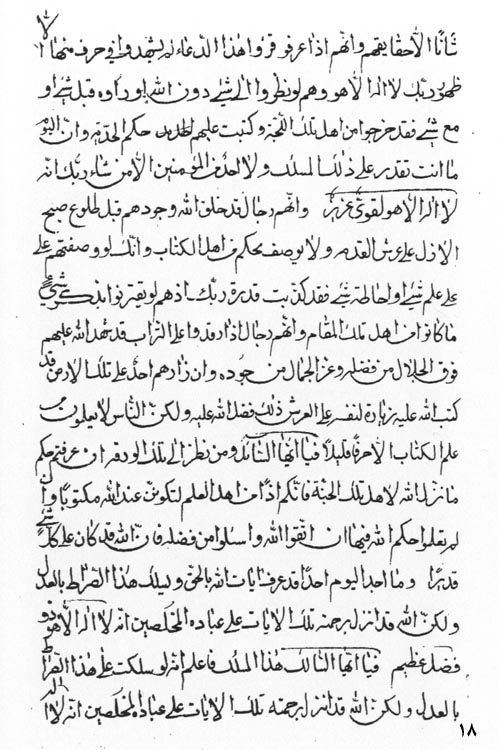 شأنا الا حقايقهم وانهم اذا عرفوا قرؤا هذا الدعاء لم يشهدوا فى حرف منها الا
ظهور ربك لا اله الا هو وهم لو نظروا الى شئ دون الله اوراوه قبل شئ او
مع شئ فقد خرجوا من اهل تلك اللجة وكتبت عليهم حكم الحدية وان اليوم
ما انت تقدير على ذلك المسلك ولا احد من المؤمنين الا من شاء ربك انه
لا اله الا هو لقوى عزيز وانهم رجال قد خلق الله وجودهم قبل طلوع صبح
الازل على عرش القدم ولا يوصف بحكم من اهل الكتاب وانك لو وصفتهم على
على علم شئ او احاطة شئ فقد كذبت قدرة ربك اذهم لو يقترنوا بذكر شئ
ما كانوا من اهل تلك المقام وانهم رجال اذا رقدوا على التراب قد شهد الله عليهم
فوق الجلال من فضله وعز الجمال من جوده وان زارهم احد على تلك الارض قد
كتب الله عليه زيارة لنفسه على العرش ذلك فضل الله عليه ولكن الناس لا يعلمون من
علم الكتاب الا حرفا قليلا فيا ايها السائل ومن نظر الى تلك الورقة ان عرفتم حكم
ما نزل الله لاهل تلك الجنة فانكم اذا من اهل العلم لتكونن عند الله مكتوبا وان
لم تعلموا حكم الله فيها ان اتقوا الله واسئلوا من فضله فان الله قد كان على كل شئ
قديرا وما اجد اليوم احدا قد عرف ايات الله بالحق ويسلك هذا الصراط بالعدل
ولكن الله قد انزل برحمته تلك الايات على عباده المخلصين انه لا اله الا هو ذو
فضل عظيم فيا ايها السالك هذا المسلك فاعلم انه لو سلكت على هذا الصراط
بالعدل ولكن الله قد انزل برحمته تلك الايات على عباده المخلصين انه لا اله
١٨